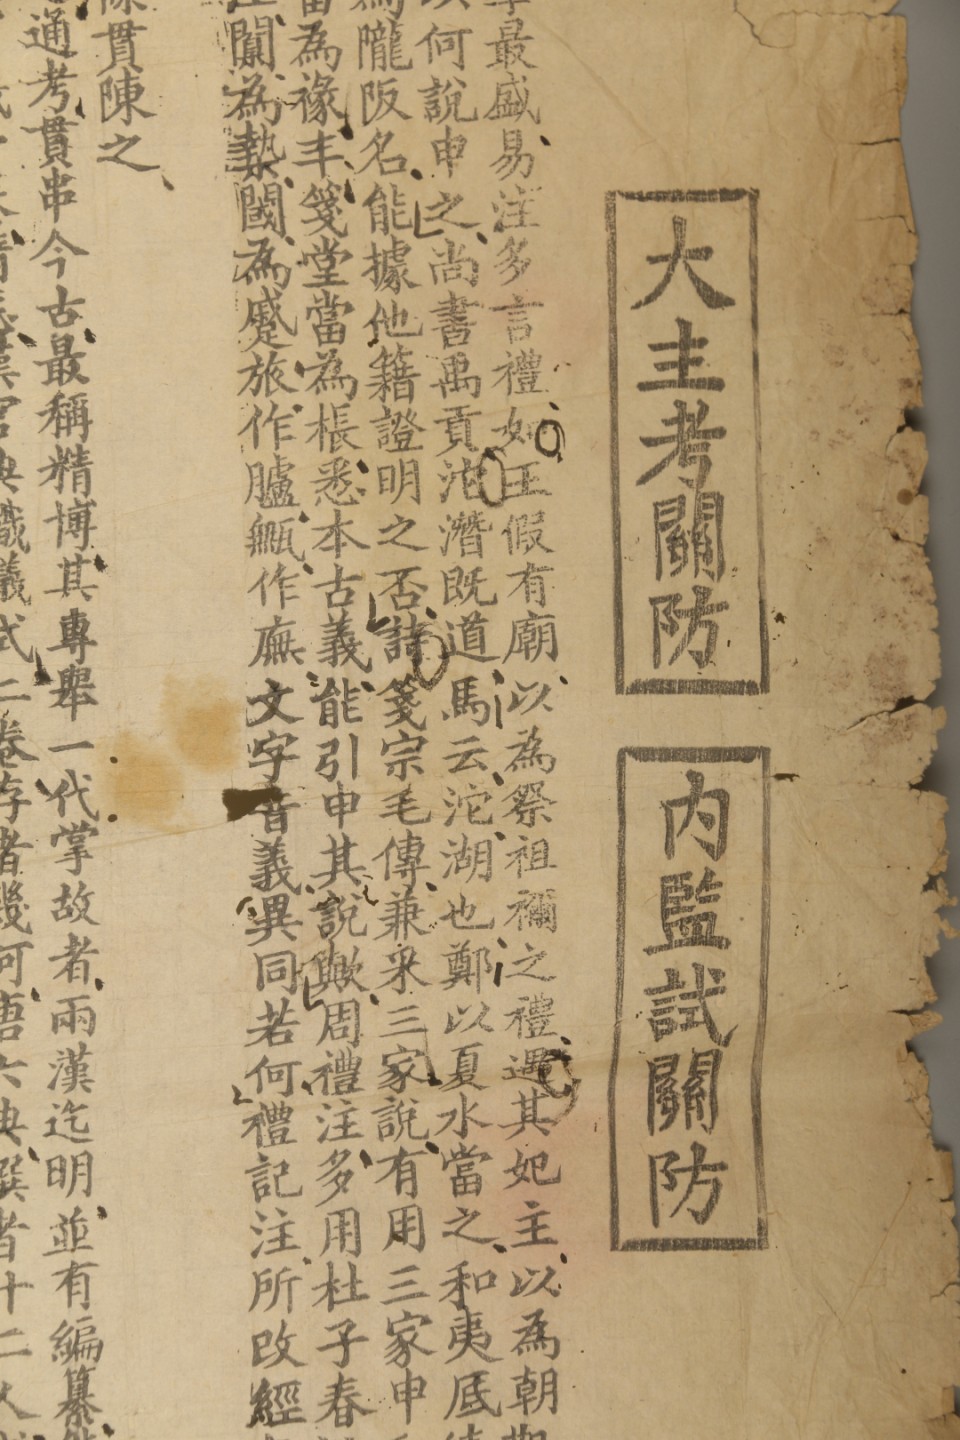 大主考關防
內監試關防
最盛易注多言禮如王假有廟以為祭祖禰之禮遇其妃主以為朝
何說申之尚書禹貢沱潛既道馬云沱湖也鄭以夏水當之和夷底
為隴阪名能據他籍證明之否詩箋宗毛傳兼采三家說有用三家申
當為褖丰箋堂當為棖悉本古義能引申其說歟周禮注多用杜子春
闃為槷閾為蹙旅作臚甒作廡文字音義異同若何禮記注所改經
貫陳之
通考貫串今古最稱精博其專舉一代掌故者兩漢迄明並有編纂
漢官典職儀式二卷存者幾何唐六典撰者十二人